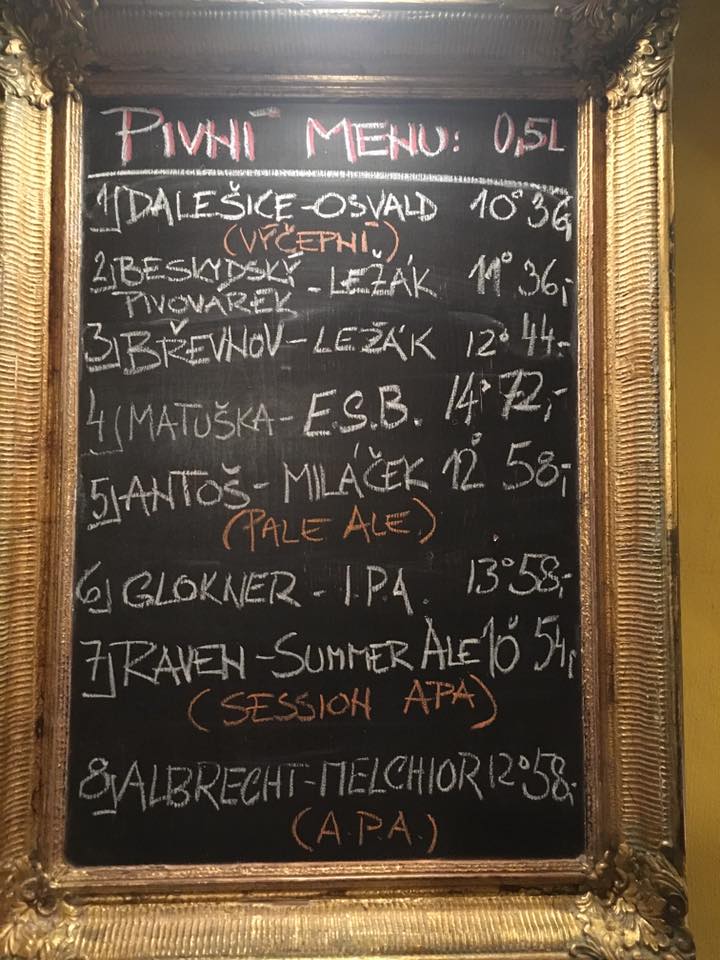 PIVNÍ MENU: 0,5L
1) DALEŠICE - OSVALD 10° 36,-
(VÝČEPNÍ)
2) BESKYDSKÝ PIVOVÁREK - LEŽÁK 11° 36,-
3) BŘEVNOV - LEŽÁK 12° 44,-
4) MATUŠKA - E.S.B. 14° 72,-
5) ANTOŠ - MILÁČEK 12° 58,-
(PALE ALE)
6) GLOKNER - IPA. 13° 58,-
7) RAVEN - SUMMER ALE 10° 54,-
(SESSION APA)
8) ALBRECHT - MELCHIOR 12° 58,-
(A.P.A.)